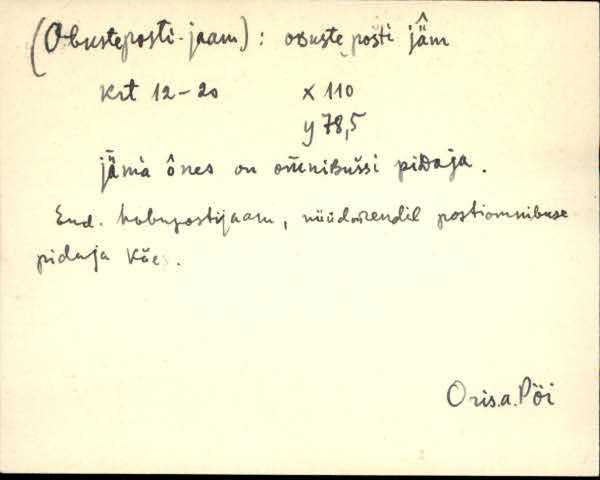 (Obusteposti-jaam): oʙuste posti jä̂m
krt 12-20 x 110
y 78,5
jämà ônes on om̄niʙuššì piᴅaja.
End. hobupostijaam, nüüd rendil postiomnibuse
pidaja käes.
Oris.a. Pöi